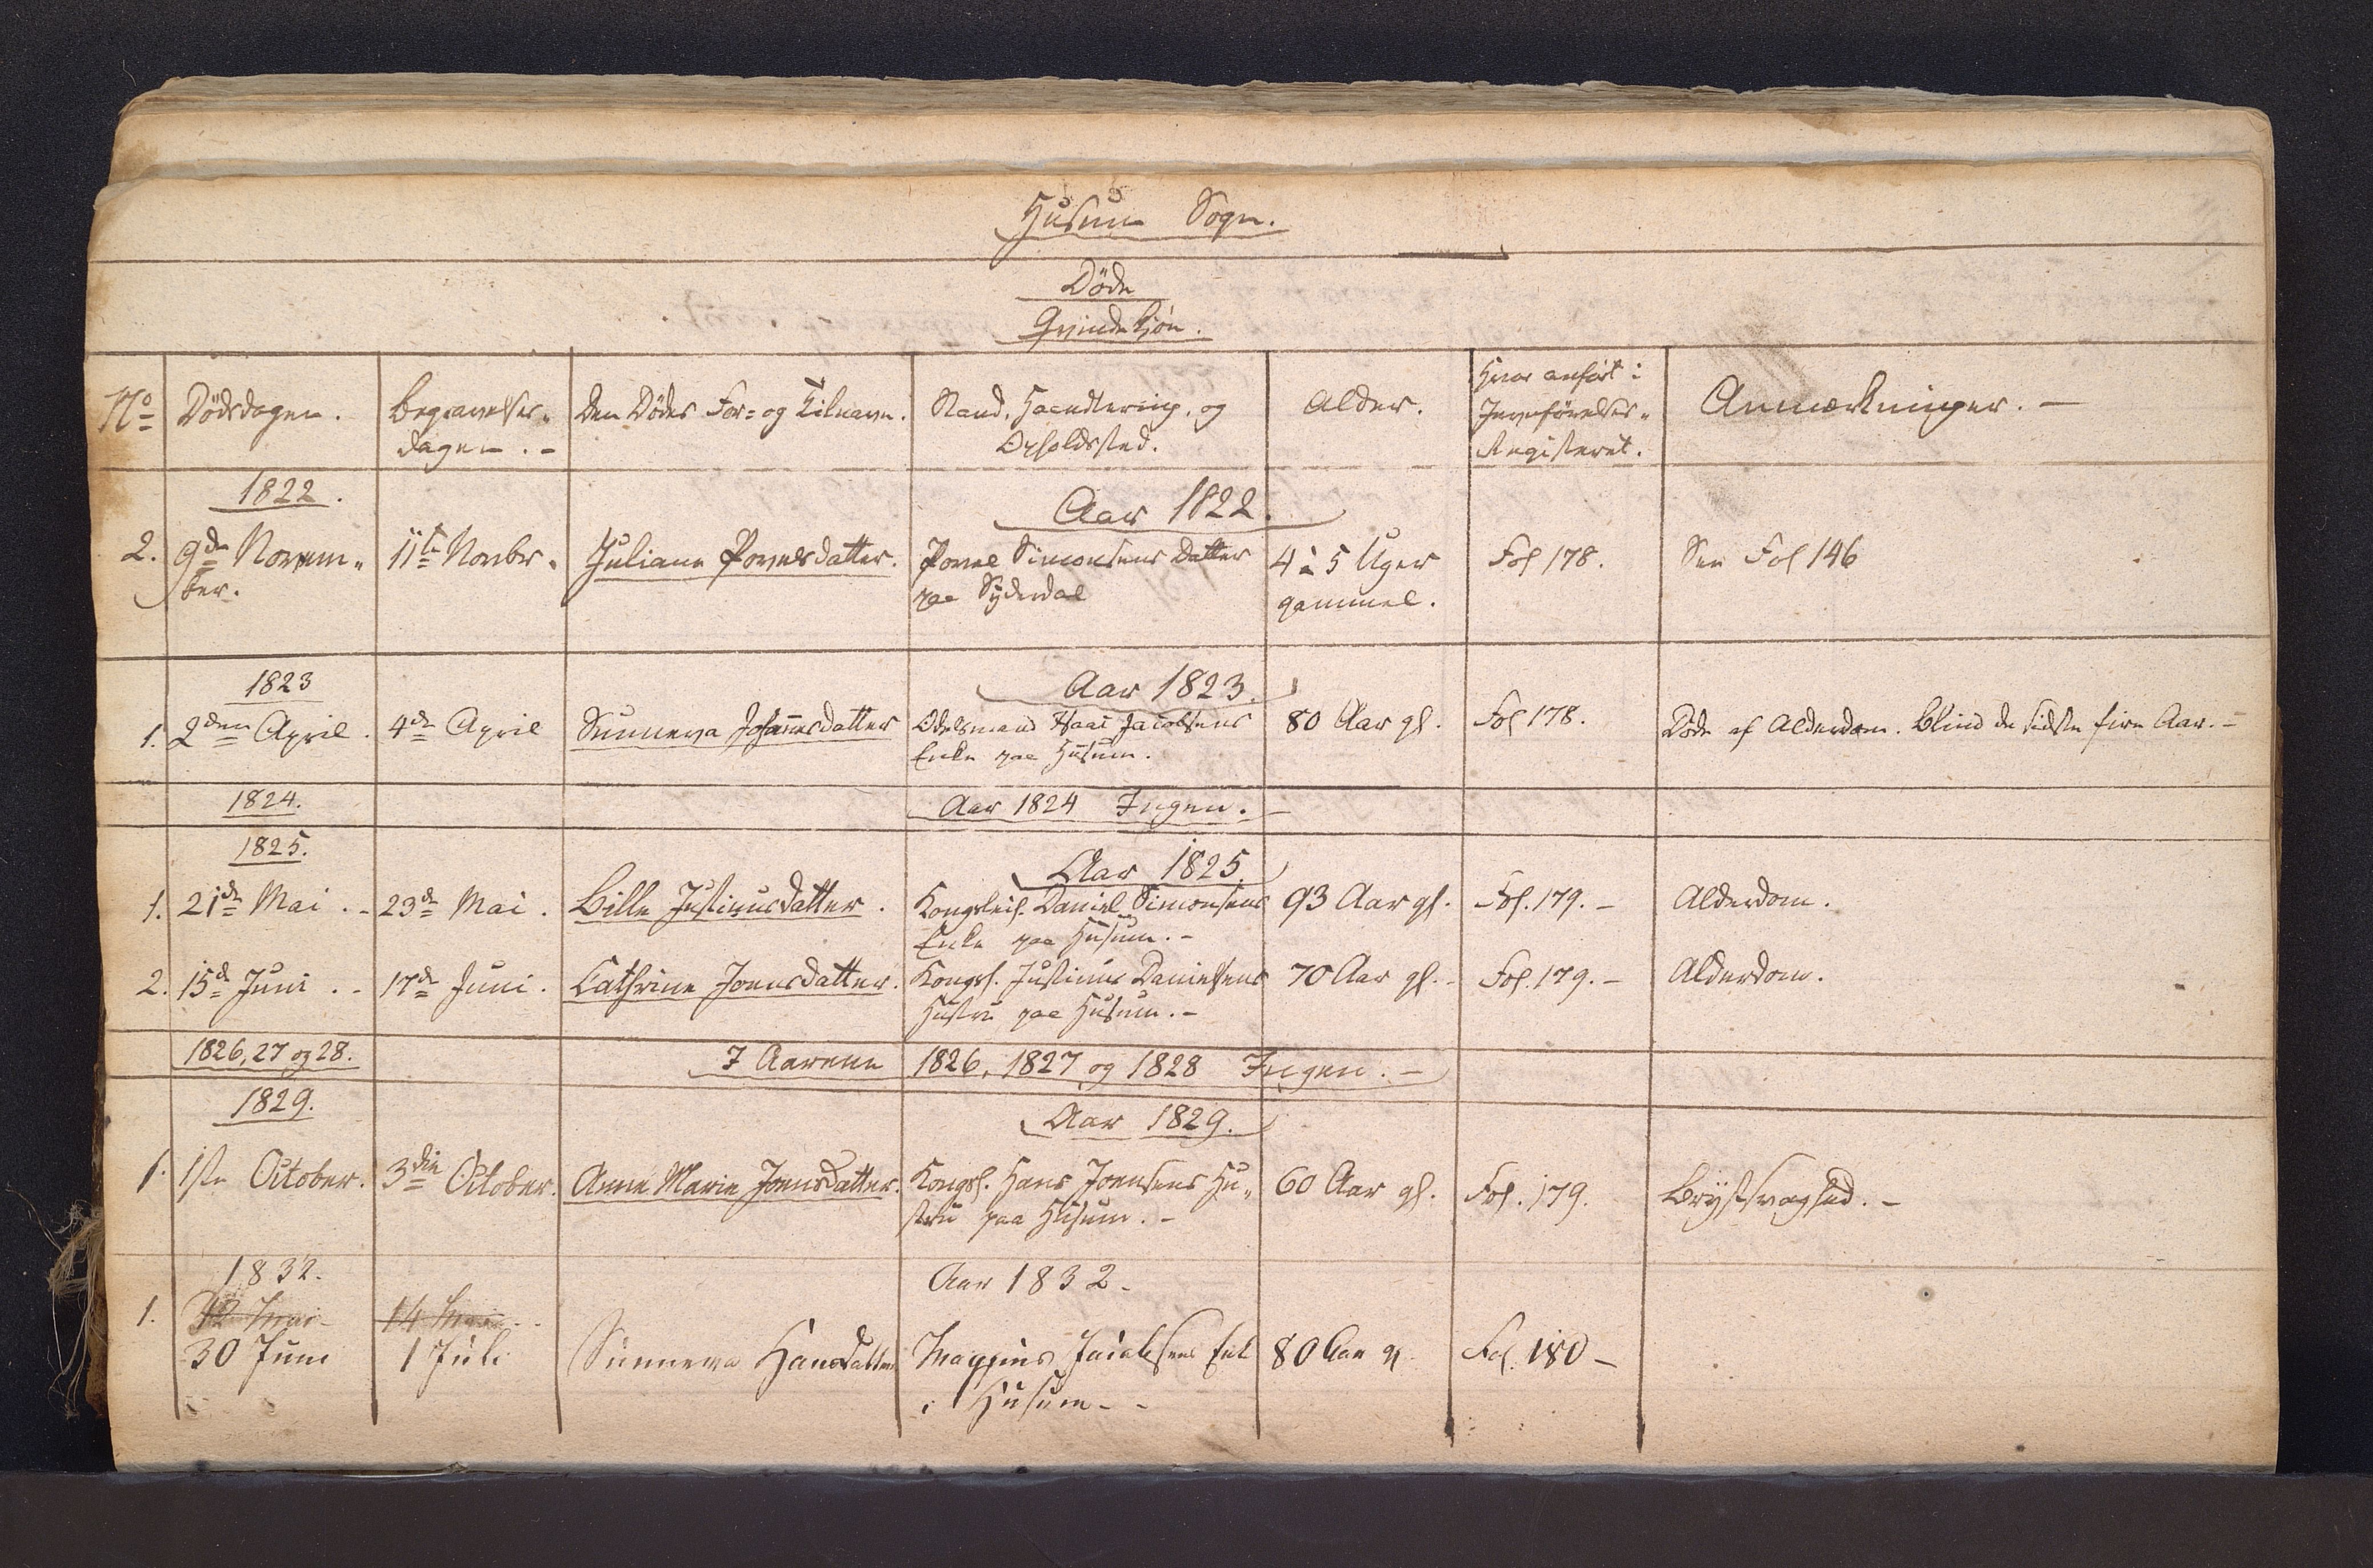 Husum Sogn.
Døde
Qvindekjøn.
No Dødsdagen. Begravelses- Den Dødes For- og Tilnavn. Stand, Haandtering, og Alder. Hvor anført i Anmærkninger. -
dagen. - Opholdssted. Jevnførelses-
Registeret.
1822. Aar 1822.
2. 9de Novem- 11te Novbr. Juliane Povelsdatter. Povel Simonsens Datter 4 à 5 Uger Fol 178. See Fol 146
ber. paa Syderdal gammel.
1823 Aar 1823.
1. 2den April. 4de April Sunneva Johannesdatter Odelsmand Isaac Jacobsens 80 Aar gl. Fol 178. Døde af Alderdom. Blind de sidste fire Aar. -
Enke paa Husum.
1824. Aar 1824 Ingen. -
1825. Aar 1825.
1. 21de Mai. - 23de Mai. Bille Justinusdatter. Kongsleif. Daniel Simonsens 93 Aar gl. Fol. 179. - Alderdom.
Enke paa Husum. -
2. 15de Juni. - 17de Juni. Cathrine Joensdatter. Kongsf. Justinus Danielsens 70 Aar gl. - Fol. 179. - Alderdom.
Hustru paa Husum. -
1826, 27 og 28. I Aarene 1826, 1827 og 1828 Ingen. -
1829. Aar 1829.
1. 1ste October. 3die October. Anne Marie Joensdatter. Kongsf. Hans Joensens Hu- 60 Aar gl. Fol. 179. Brystsvaghed. -
stru paa Husum. -
1832. Aar 1832.
1. 12 Mai 14 Mai
30 Juni 1 Juli Sunneva Hansdatter Magnus Jacobsens Enk 80 Aar gl Fol. 180 -
i Husum - -